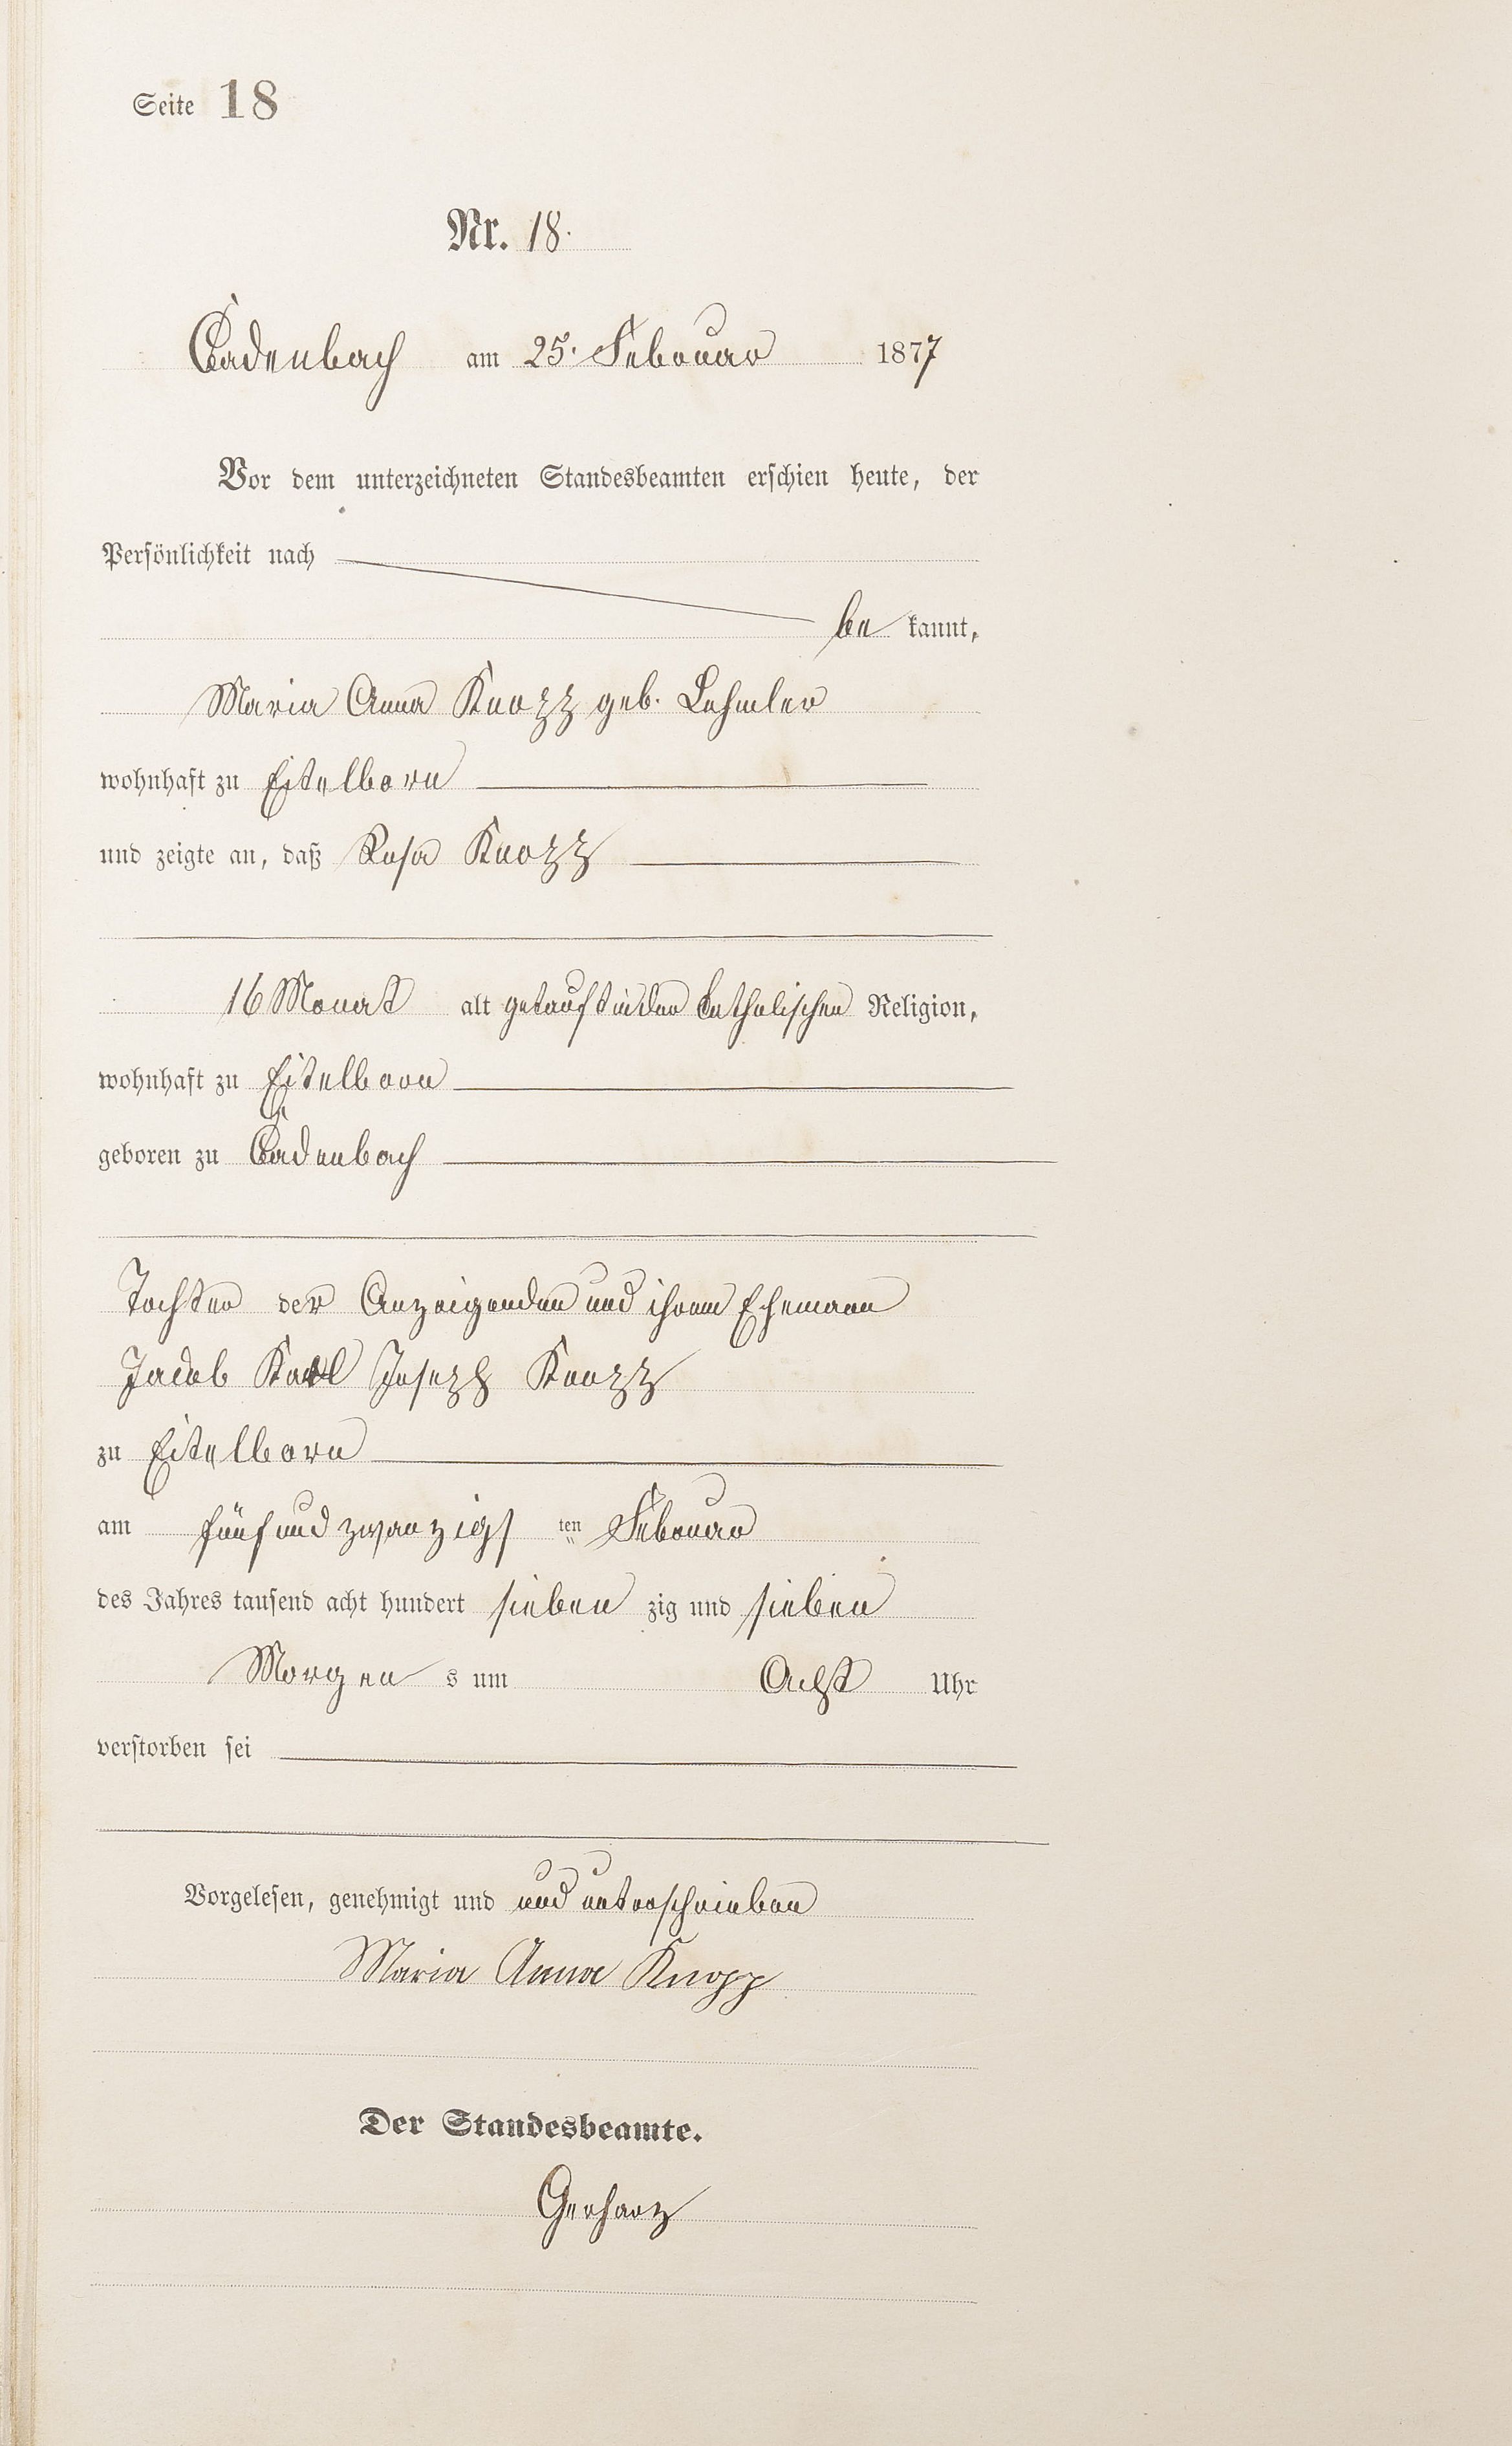 Seite 18
Nr. 18.
Cadenbach am 25. Februar 1877
Vor dem unterzeichneten Standesbeamten erschien heute, der
Persönlichkeit nach
be kannt,
Maria Anna Knopp geb. Lehmler
wohnhaft zu Eitelborn
und zeigte an, daß Rosa Knopp
16 Monat alt getauft in der catholischen Religion,
wohnhaft zu Eitelborn
geboren zu Cadenbach
Tochter der Anzeigenden und ihrem Ehemann
Jacob Karl Joseph Knopp
zu Eitelborn
am fünfundzwanzigs ten Februar
des Jahres tausend acht hundert sieben zig und sieben
Morgen s um Acht Uhr
verstorben sei
Vorgelesen, genehmigt und und unterschrieben
Maria Anna Knopp
Der Standesbeamte.
Gerharz